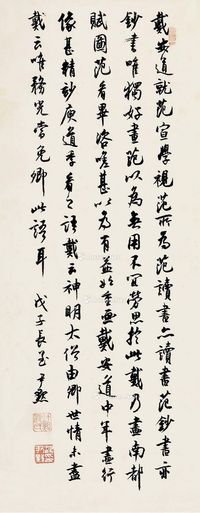 戴安道就范宣學視范所為范讀書亦讀書范鈔書亦
鈔書唯獨好畫范以為無用不宜勞思於此戴乃畫南都
賦圖范看畢咨嗟甚以為有益始重畫戴安道中年畫行
像甚精妙庾道季看之語戴云神明太俗由卿世情未盡
戴云唯務光當免卿此語耳 戊子長至尹默